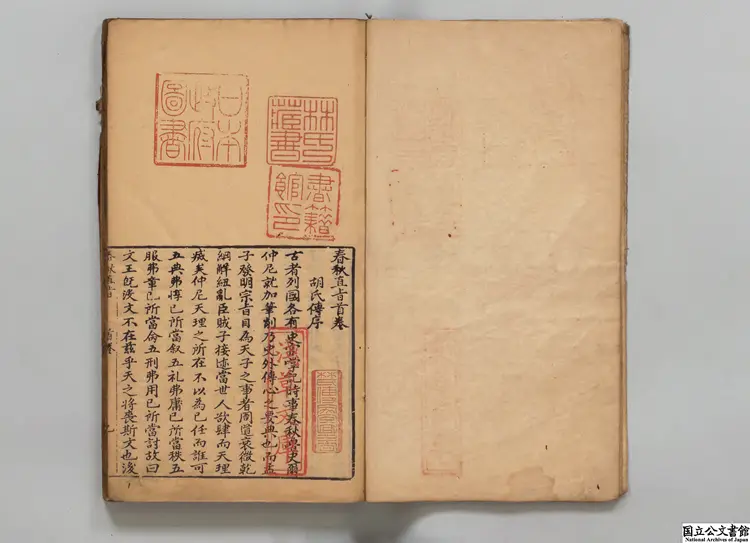 日本政府圖書
林氏藏書
書籍館印
春秋直旨首卷
胡氏傳序
古者列國各有史官掌記時事春秋魯史爾
仲尼就加筆削乃史外傳心之要典也而孟
子發明宗旨目為天子之事者周道衰微乾
綱解紐亂臣賊子接迹當世人欲肆而天理
滅矣仲尼天理之所在不以為已任而誰可
五典弗惇已所當叙五礼弗庸已所當秩五
服弗章已所當命五刑弗用已所當討故曰
文王既没文不在兹乎天之將喪斯文也後
春秋直旨 首卷
淺草文庫
国立公文書館
National Archives of Japan